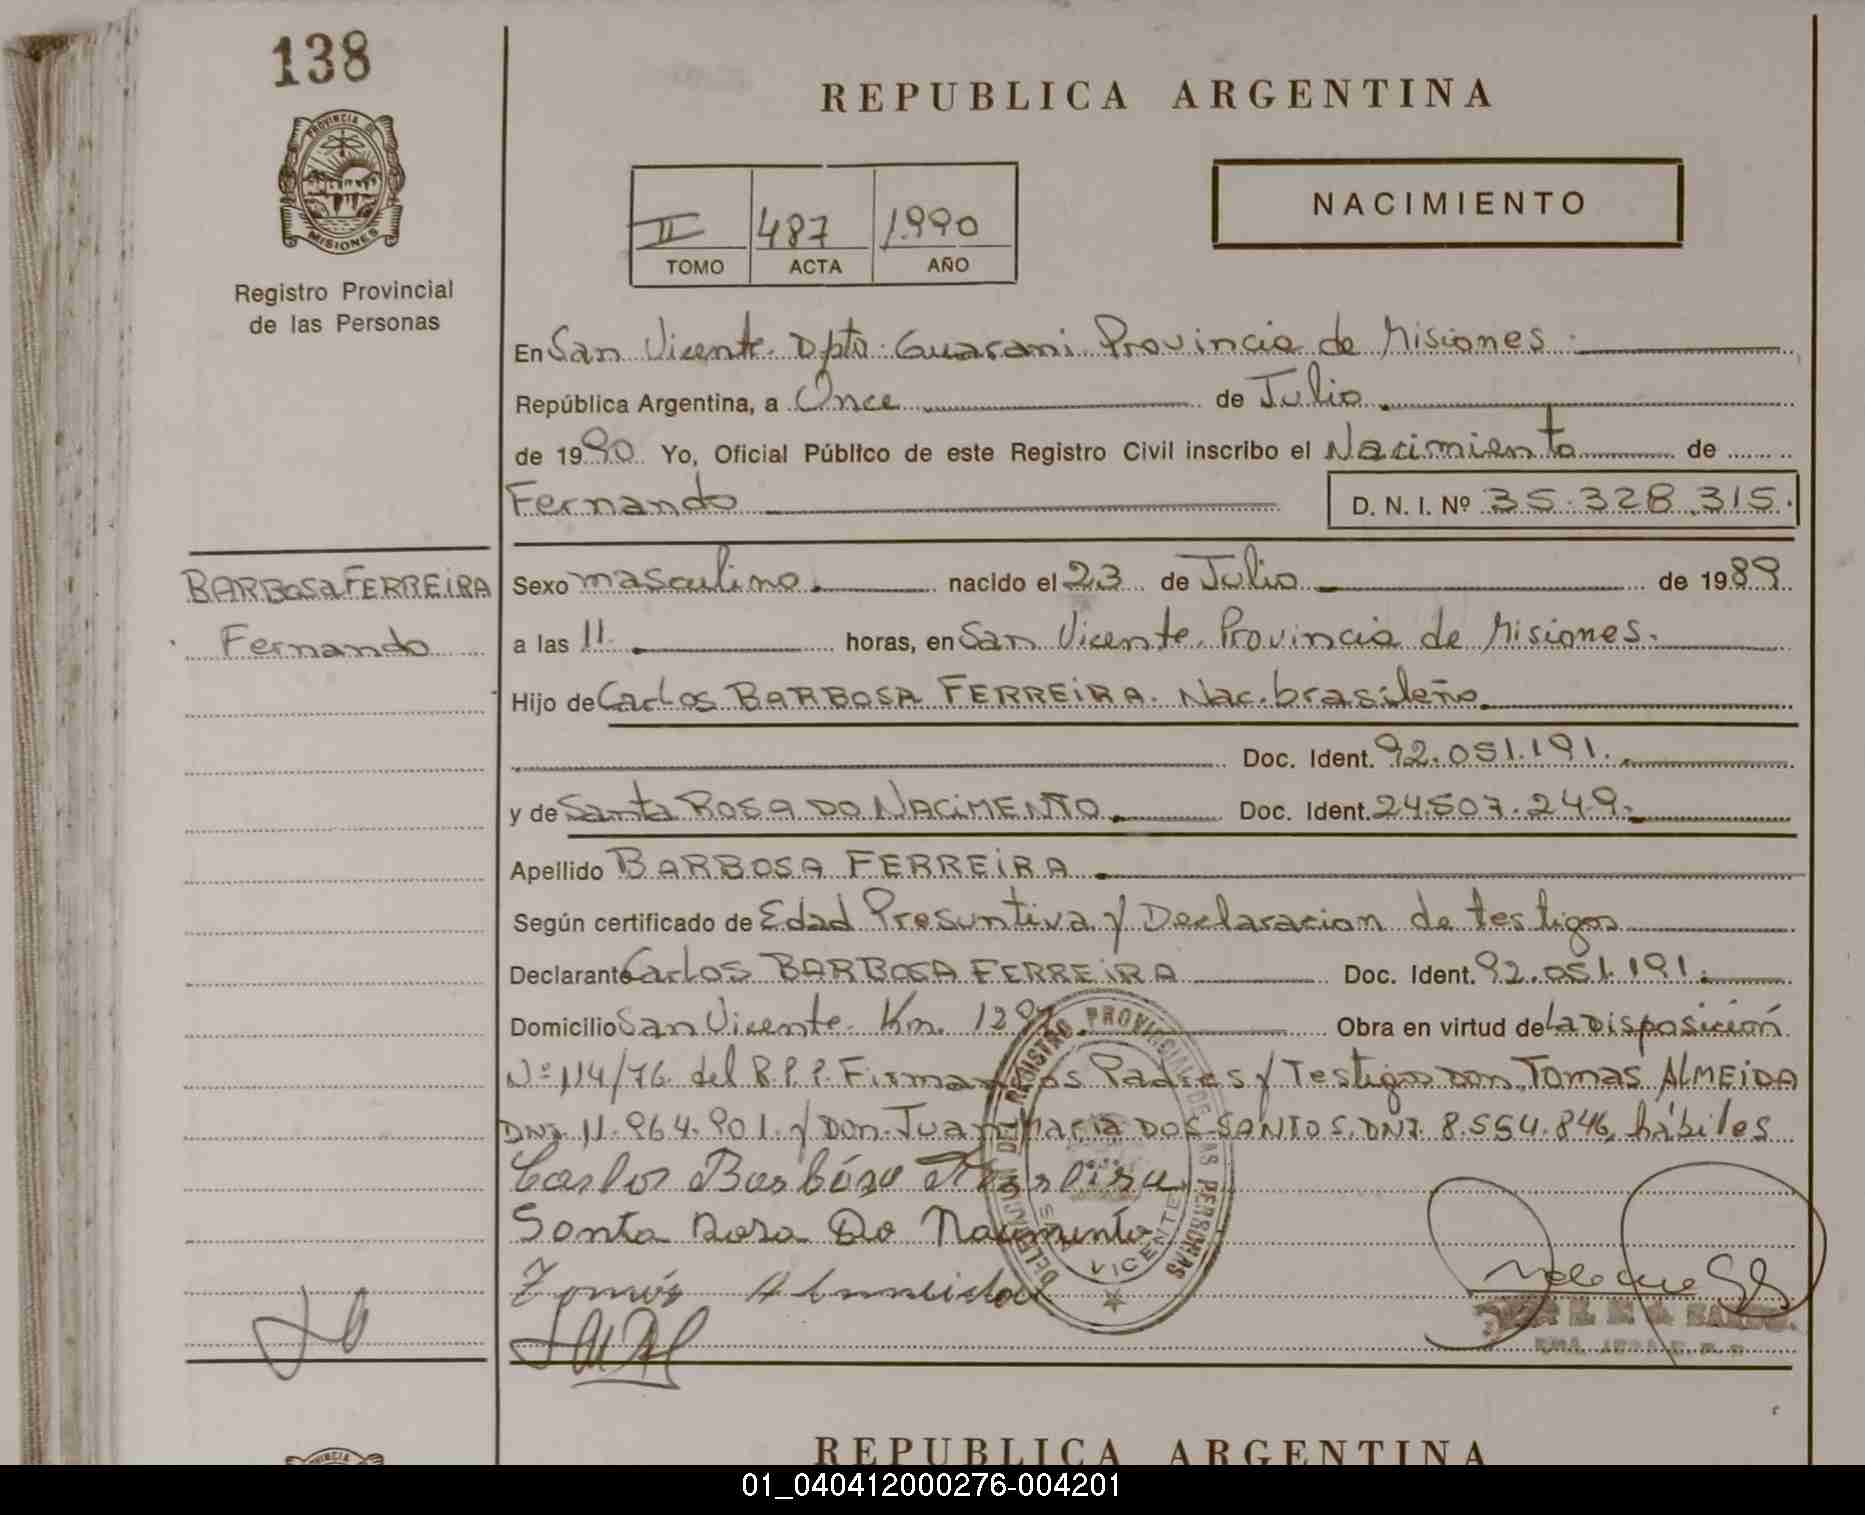 138
PROVINCIA DE
MISIONES
Registro Provincial
de las Personas
REPUBLICA ARGENTINA
NACIMIENTO
II 487 1.990
TOMO ACTA AÑO
En San Vicente Dpto. Guarani Provincia de Misiones.
República Argentina, a Once de Julio
de 1990 Yo, Oficial Público de este Registro Civil inscribo el Nacimiento de
Fernando D. N. I. Nº 35.328.315.
BARBOSA FERREIRA
Fernando
Sexo masculino nacido el 23 de Julio de 1989
a las 11 horas, en San Vicente. Provincia de Misiones.
Hijo de Carlos BARBOSA FERREIRA. Nac. brasileño
Doc. Ident. 92.051.191.
y de Santa ROSA DO NACIMENTO Doc. Ident. 24.507.249.
Apellido BARBOSA FERREIRA
Según certificado de Edad Presuntiva y Declaracion de testigos
Declarante Carlos BARBOSA FERREIRA Doc. Ident. 92.051.191.
Domicilio San Vicente. Km. Obra en virtud de la Disposición
Nº 114/76 del R.P.P. Firman los Padres y Testigos Don Tomas ALMEIDA
DNI. 11.964.901 y Don Juan Maria DOS SANTOS. DNI. 8.554.846, hábiles
Carlos Barbósa Ferreira
Santa Rosa Do Nacimento
Tomás Almeida
DELEGACION DEL REGISTRO PROVINCIAL DE LAS PERSONAS
SAN VICENTE
REPUBLICA ARGENTINA
01_040412000276-004201